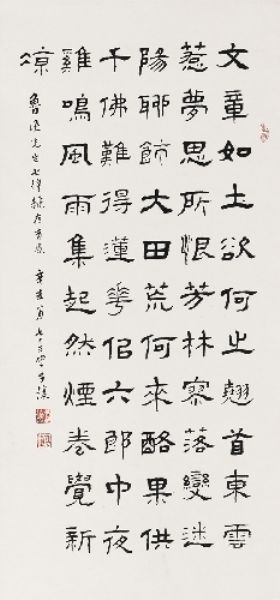 文章如土欲何之翹首東雲
惹夢思所恨芳林寥落變迷
陽聊飾大田荒何來酪果供
千佛難得蓮華佀六郎中夜
雞鳴風雨集起然煙卷覺新
涼
魯迅先生七律